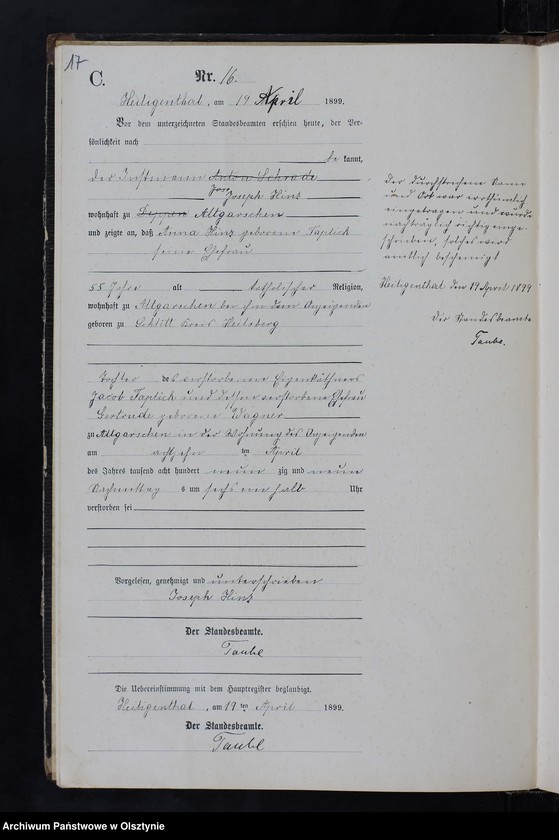 17
C.
Nr. 16.
Heiligenthal, am 19 April 1899.
Vor dem unterzeichneten Standesbeamten erschien heute, der Per-
sönlichkeit nach
be kannt,
der Instmann Anton Schrade
Joseph Hinz
wohnhaft zu Deppen Altgarschen
und zeigte an, daß Anna Hinz geborene Taplick
seine Ehefrau
58 Jahre alt katholischer Religion,
wohnhaft zu Altgarschen bei ihm dem Anzeigenden
geboren zu Schlitt Kreis Heilsberg
Tochter des verstorbenen Eigenkäthners
Jacob Taplick und dessen verstorbene Ehefrau
Gertrude geborene Wagner
zu Altgarschen in der Wohnung des Anzeigenden
am achtzehn ten April
des Jahres tausend acht hundert neun zig und neun
Nachmittag s um sechs ein halb Uhr
verstorben sei
Vorgelesen, genehmigt und unterschrieben
Joseph Hinz
Der Standesbeamte.
Taube
Die Uebereinstimmung mit dem Hauptregister beglaubigt.
Heiligenthal, am 19 ten April 1899.
Der Standesbeamte.
Taube
Der durchstrichene Name
und Ort war irrthümlich
eingetragen und wurde
nachträglich richtig einge-
schrieben, solches wird
amtlich bescheinigt
Heiligenthal den 19 April 1899
Der Standesbeamte
Taube.
Archiwum Państwowe w Olsztynie